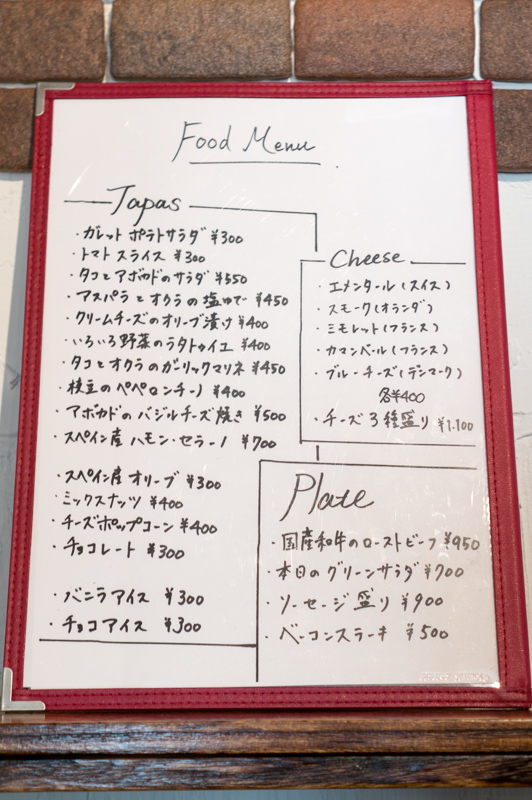 Food Menu
Tapas
・ガレット ポテトサラダ ¥300
・トマト スライス ¥300
・タコとアボカドのサラダ ¥550
・アスパラとオクラの塩ゆで ¥450
・クリームチーズのオリーブ漬け ¥400
・いろいろ野菜のラタトゥイユ ¥400
・タコとオクラのガーリックマリネ ¥450
・枝豆のペペロンチーノ ¥400
・アボカドのバジルチーズ焼き ¥500
・スペイン産 ハモン・セラーノ ¥700
・スペイン産 オリーブ ¥300
・ミックスナッツ ¥400
・チーズポップコーン ¥400
・チョコレート ¥300
・バニラアイス ¥300
・チョコアイス ¥300
Cheese
・エメンタール(スイス)
・スモーク(オランダ)
・ミモレット(フランス)
・カマンベール(フランス)
・ブルーチーズ(デンマーク)
各¥400
・チーズ3種盛り ¥1.100
Plate
・国産和牛のローストビーフ ¥950
・本日のグリーンサラダ ¥700
・ソーセージ盛り ¥900
・ベーコンステーキ ¥500